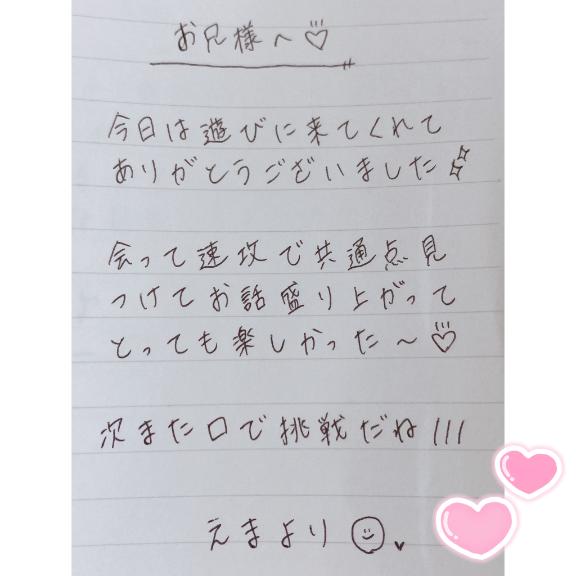 お兄様へ♡
今日は遊びに来てくれて
ありがとうございました
会って速攻で共通点見
つけてお話盛り上がって
とっても楽しかった〜♡
次また口で挑戦だね!!!
えまより